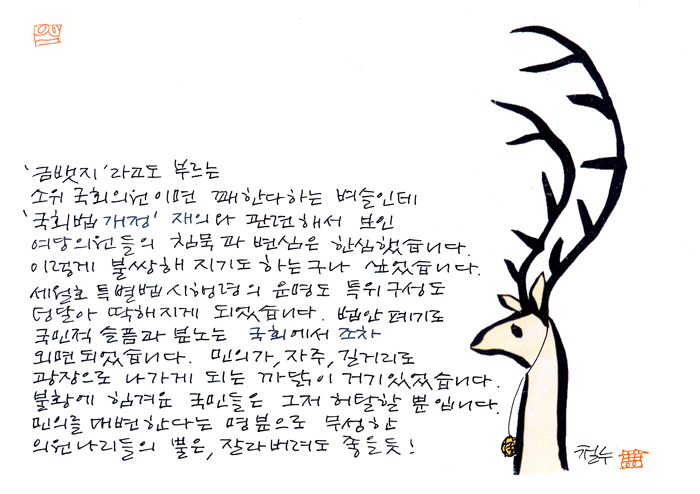 '금뱃지'라고도 부르는
소위 국회의원이면 꽤한다하는 벼슬인데
'국회법 개정' 재의와 관련해서 보인
여당의원들의 침묵과 변심은 한심했습니다.
이렇게 불쌍해 지기도 하는구나 싶었습니다.
세월호 특별법시행령의 운명도 특위구성도
덩달아 딱해지게 되었습니다. 법안 폐기로
국민적 슬픔과 분노는 국회에서조차
외면되었습니다. 민의가, 자주, 길거리로
광장으로 나가게 되는 까닭이 거기있었습니다.
불황에 힘겨운 국민들은 그저 허탈할 뿐입니다.
민의를 대변한다는 명분으로 무성한
의원나리들의 뿔은, 잘라버려도 좋을듯!
철수